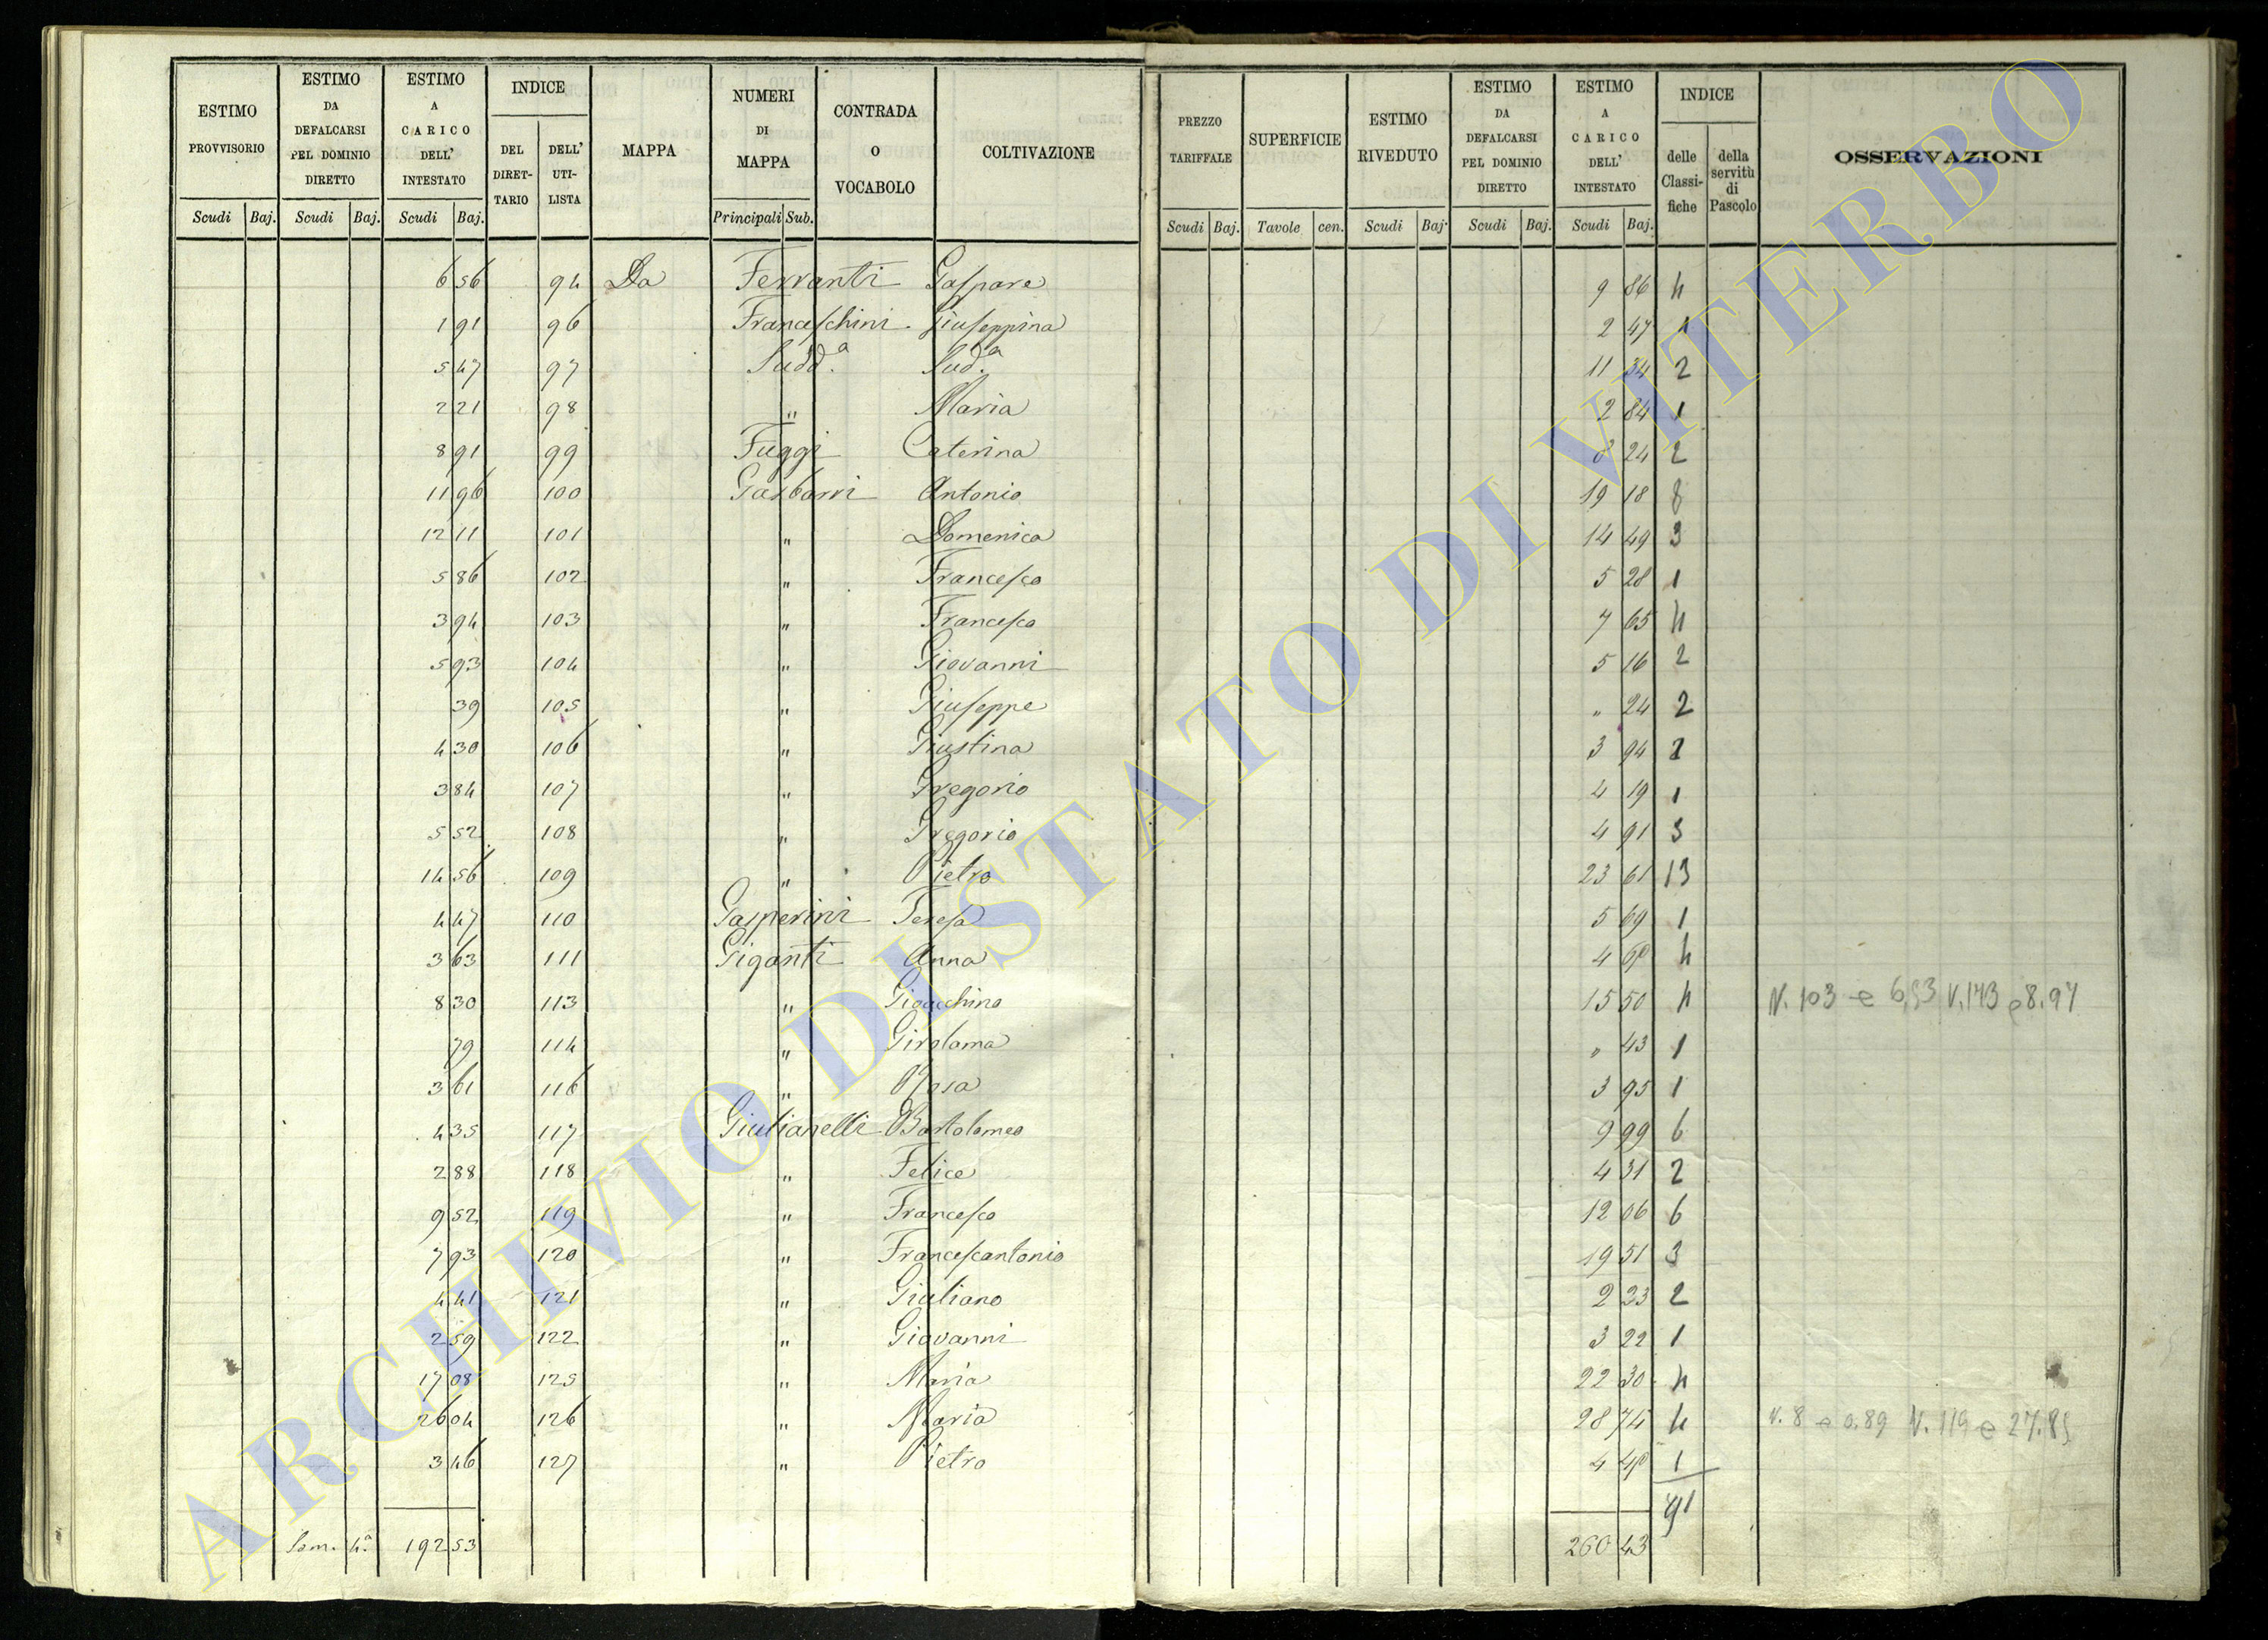 ESTIMO PROVVISORIO Scudi Baj.
ESTIMO DA DEFALCARSI PEL DOMINIO DIRETTO Scudi Baj.
ESTIMO A CARICO DELL' INTESTATO Scudi Baj.
INDICE DEL DIRETTARIO DELL' UTILISTA
MAPPA
NUMERI DI MAPPA Principali Sub.
CONTRADA O VOCABOLO
COLTIVAZIONE
PREZZO TARIFFALE Scudi Baj.
SUPERFICIE Tavole cen.
ESTIMO RIVEDUTO Scudi Baj.
ESTIMO DA DEFALCARSI PEL DOMINIO DIRETTO Scudi Baj.
ESTIMO A CARICO DELL' INTESTATO Scudi Baj.
INDICE delle Classifiche della servitù di Pascolo
OSSERVAZIONI
6 56 94 Da Ferranti Gaspare 9 86 4
1 91 96 Franceschini Giuseppina 2 47 1
5 47 97 Sudd.a Sud.a 11 34 2
2 21 98 " Maria 2 84 1
8 91 99 Fuggi Caterina 8 24 2
11 96 100 Gasbarri Antonio 19 18 8
12 11 101 " Domenica 14 49 3
5 86 102 " Francesco 5 28 1
3 94 103 " Francesco 7 65 4
5 93 104 " Giovanni 5 16 2
39 105 " Giuseppe " 24 2
4 30 106 " Giustina 3 94 2
3 84 107 " Gregorio 4 19 1
5 52 108 " Gregorio 4 91 3
14 56 109 " Pietro 23 61 13
4 47 110 Gasperini Teresa 5 69 1
3 63 111 Giganti Anna 4 4
8 30 113 " Gioacchino 15 50 4 N. 103 e 6,53 N. 143 e 8.97
79 114 " Girolama " 43 1
3 61 116 " Rosa 3 95 1
4 35 117 Giulianelli Bartolomeo 9 99 6
2 88 118 " Felice 4 31 2
9 52 119 " Francesco 12 06 6
7 93 120 " Francescantonio 19 51 3
4 41 121 " Giuliano 2 23 2
2 59 122 " Giovanni 3 22 1
17 08 125 " Maria 22 30 4
26 04 126 " Maria 28 74 4 N. 8 e 0.89 N. 119 e 27.85
3 46 127 " Pietro 4 1
91
Som. 4.a 192 53 260 43
ARCHIVIO DI STATO DI VITERBO